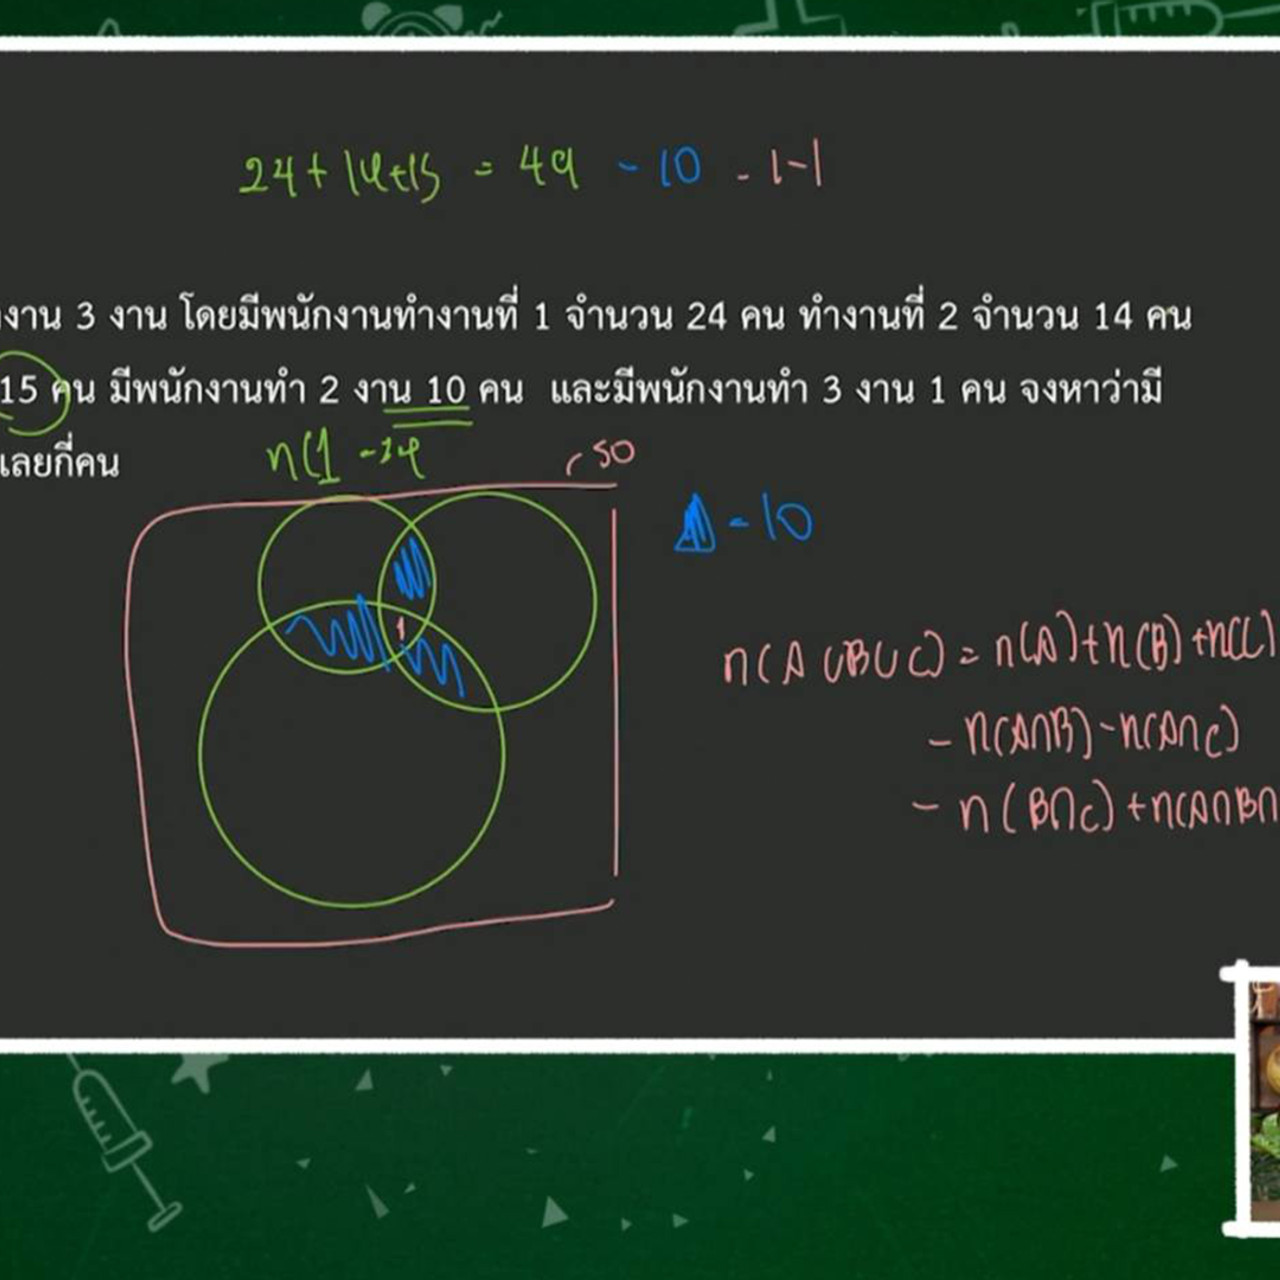 24+14+15 = 49 - 10 - 1-1
งาน 3 งาน โดยมีพนักงานทำงานที่ 1 จำนวน 24 คน ทำงานที่ 2 จำนวน 14 คน
15 คน มีพนักงานทำ 2 งาน 10 คน และมีพนักงานทำ 3 งาน 1 คน จงหาว่ามี
เลยกี่คน
n(1 -24
50
= 10
1
n(A∪B∪C) = n(A)+n(B)+n(C)
- n(A∩B)-n(A∩C)
- n(B∩C)+n(A∩B∩